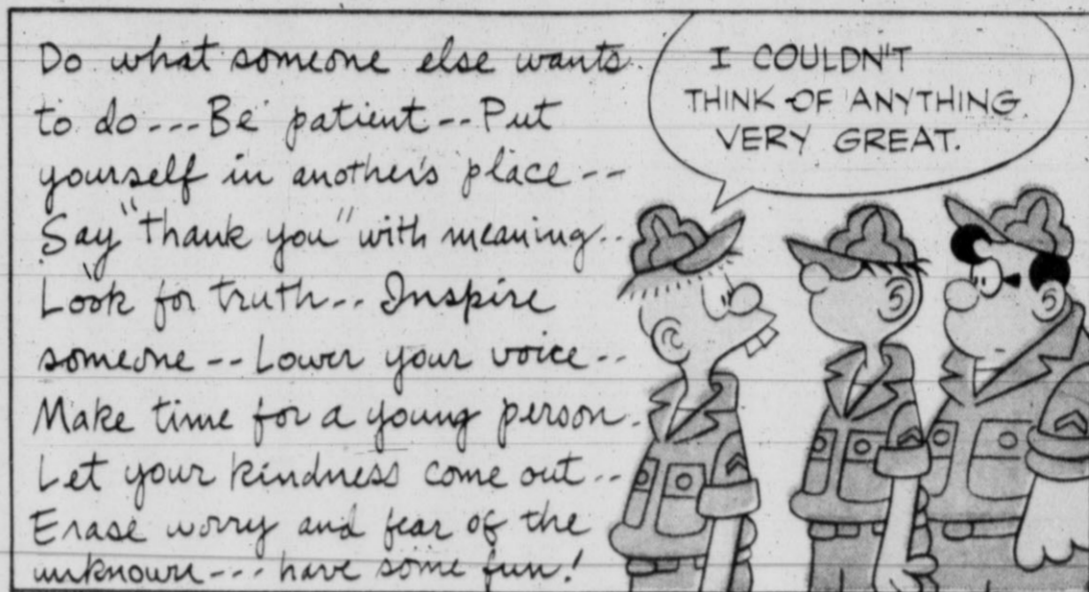 Do what someone else wants
to do --- Be patient -- Put
yourself in another's place --
Say "thank you" with meaning --
Look for truth -- Inspire
someone -- Lower your voice --
Make time for a young person.
Let your kindness come out --
Erase worry and fear of the
unknown --- have some fun!
I COULDN'T
THINK OF ANYTHING
VERY GREAT.